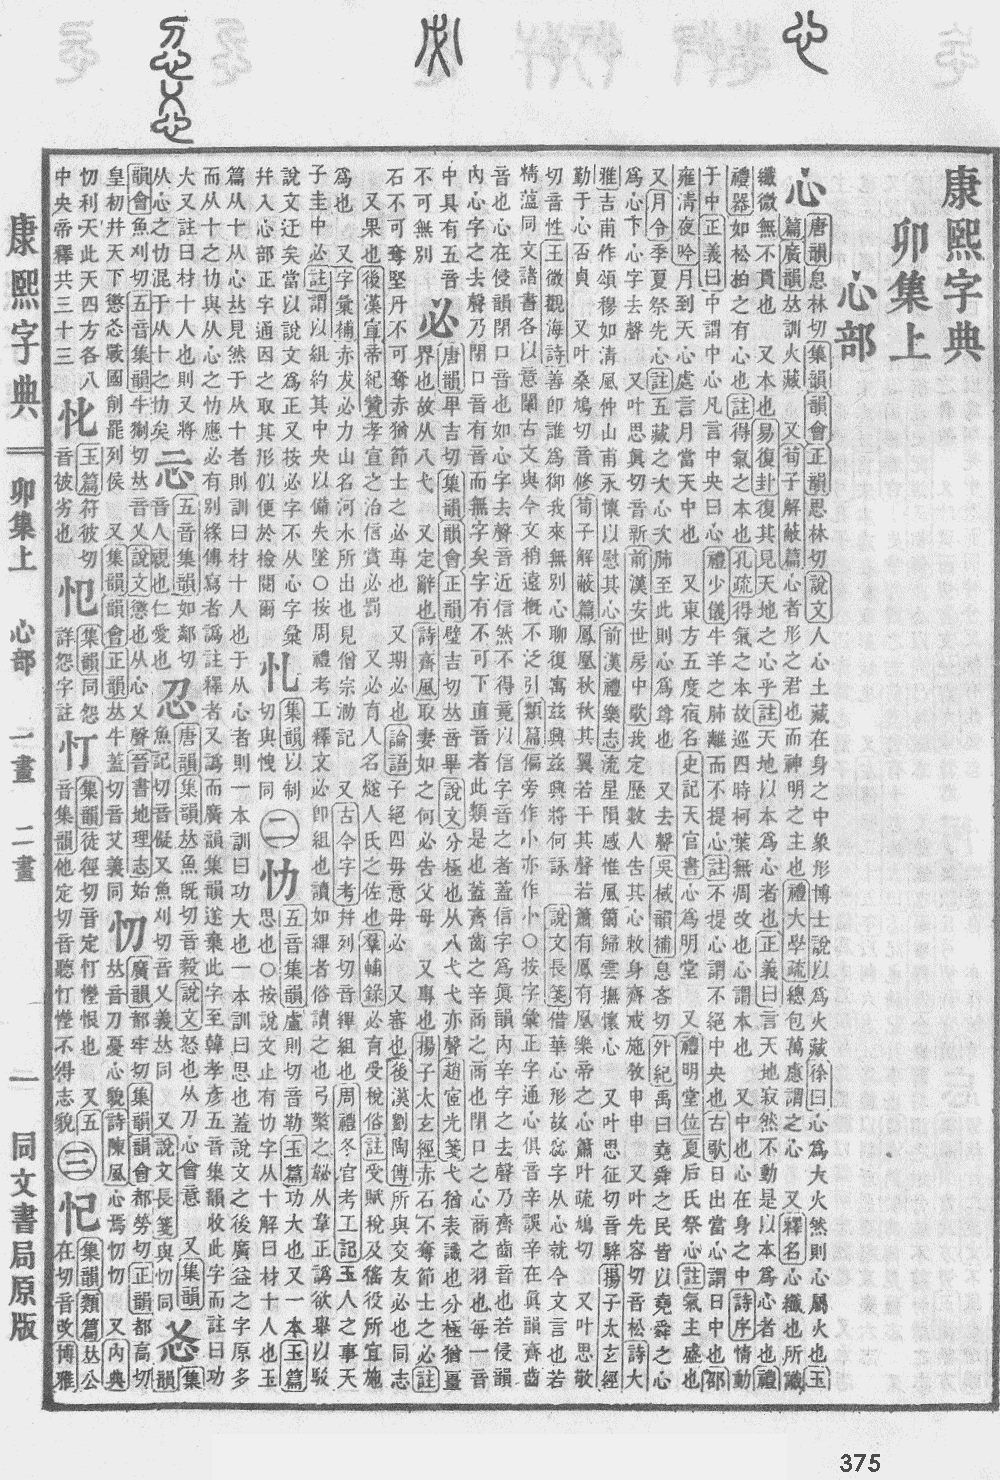 康熙字典
卯集上
心部
心
唐韻息林切集韻韻會正韻思林切說文人心土藏在身之中象形博士說以爲火藏徐曰心爲大火然則心屬火也玉
篇廣韻𠀤訓火藏 又荀子解蔽篇心者形之君也而神明之主也禮大學疏總包萬慮謂之心 又釋名心纖也所識
纖微無不貫也 又本也易復卦復其見天地之心乎註天地以本爲心者也正義曰言天地寂然不動是以本爲心者也禮
禮器如松柏之有心也註得氣之本也孔疏得氣之本故巡四時柯葉無凋改也心謂本也 又中也心在身之中詩序情動
于中正義曰中謂中心凡言中央曰心禮少儀牛羊之肺離而不提心註不提心謂不絕中央也古歌日出當心謂日中也邵
雍清夜吟月到天心處言月當天中也 又東方五度宿名史記天官書心爲明堂 又禮明堂位夏后氏祭心註氣主盛也
又月令季夏祭先心註五藏之次心次肺至此則心爲尊也 又去聲吳棫韻補息吝切外紀禹曰堯舜之民皆以堯舜之心
爲心下心字去聲 又叶思眞切音新前漢安世房中歌我定歷數人告其心敕身齊戒施敎申申 又叶先容切音松詩大
雅吉甫作頌穆如淸風仲山甫永懷以慰其心前漢禮樂志流星隕感惟風籋歸雲撫懷心 又叶思征切音騂揚子太玄經
勤于心否貞 又叶桑鳩切音修荀子解蔽篇鳳凰秋秋其翼若干其聲若簫有鳳有凰樂帝之心簫叶疏鳩切 又叶思敬
切音性王微觀海詩善卽誰爲御我來無別心聊復寓茲興茲興將何詠 說文長箋借華心形故惢字从心就今文言也若
精薀同文諸書各以意闡古文與今文稍遠概不泛引類篇偏旁作小亦作㣺○按字彙正字通心俱音辛誤辛在眞韻齊齒
音也心在侵韻閉口音也如心字去聲音近信然不得竟以信字音之者蓋信字爲眞韻內辛字之去聲乃齊齒音也若侵韻
內心字之去聲乃閉口音有音而無字矣字有不可下直音者此類是也蓋齊齒之辛商之商也閉口之心商之羽也每一音
中具有五音
不可無別
必
唐韻𤰞吉切集韻韻會正韻壁吉切𠀤音畢說文分極也从八弋弋亦聲趙宧光箋弋猶表識也分極猶畺
界也故从八弋 又定辭也詩齊風取妻如之何必告父母 又專也揚子太玄經赤石不奪節士之必註
石不可奪堅丹不可奪赤猶節士之必專也 又期必也論語子絕四毋意毋必 又審也後漢劉陶傳所與交友必也同志
又果也後漢宣帝紀贊孝宣之治信賞必罰 又必有人名燧人氏之佐也羣輔錄必育受稅俗註受賦稅及徭役所宜施
爲也 又字彙補赤犮必力山名河水所出也見僧宗泐記 又古今字考幷列切音縪組也周禮冬官考工記玉人之事天
子圭中必註謂以組約其中央以備失墜○按周禮考工釋文必卽組也讀如縪者俗讀之也弓檠之䪐从韋正譌欲舉以駁
說文迂矣當以說文爲正又按必字不从心字彙
幷入心部正字通因之取其形似便於檢閱爾
忆
集韻以制
切與愧同
二
忇
五音集韻盧則切音勒玉篇功大也又一本玉篇
思也○按說文止有忇字从十解曰材十人也玉
篇从十从心𠀤見然于从十者則訓曰材十人也于从心者則一本訓曰功大也一本訓曰思也蓋說文之後廣益之字原多
而从十之忇與从心之忇應必有別緣傳寫者譌註釋者又譌而廣韻集韻遂棄此字至韓孝彥五音集韻收此字而註曰功
大又註曰材十人也則又將
从心之忇混于从十之忇矣
忈
五音集韻如鄰切
音人親也仁愛也
忍
唐韻集韻𠀤魚旣切音毅說文怒也从刀心會意 又集韻
韻會魚刈切五音集韻牛猘切𠀤音乂說文懲也从心乂聲晉書地理志始
皇初幷天下懲忿戰國削罷列侯 又集韻韻會正韻𠀤牛蓋切音艾義同
忉
廣韻都牢切集韻韻會都勞切正韻都高切
𠀤音刀憂心貌詩陳風心焉忉忉 又內典
忉利天此天四方各八
中央帝釋共三十三
㤋
玉篇符彼切
音被劣也
集韻同怨
詳怨字註
忊
集韻徒徑切音定忊憕恨也 又五
音集韻他定切音聽忊憕不得志貌
三
集韻類篇𠀤公
在切音改博雅
康熙字典
卯集上
心部
一畫
二畫
一
同文書局原版
375